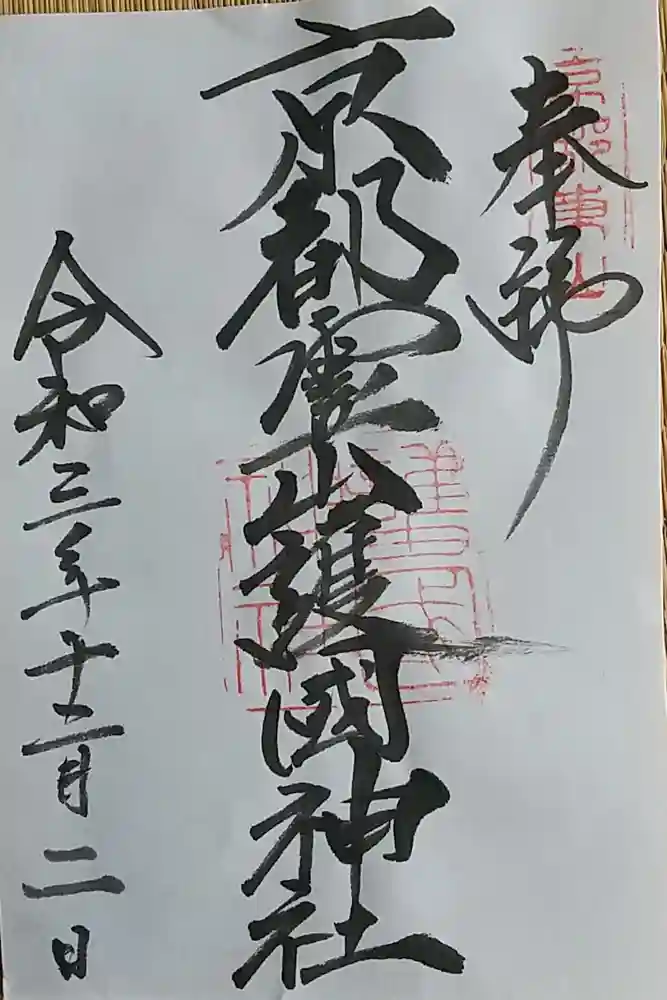 奉拝
京都霊山護國神社
令和三年十二月二日